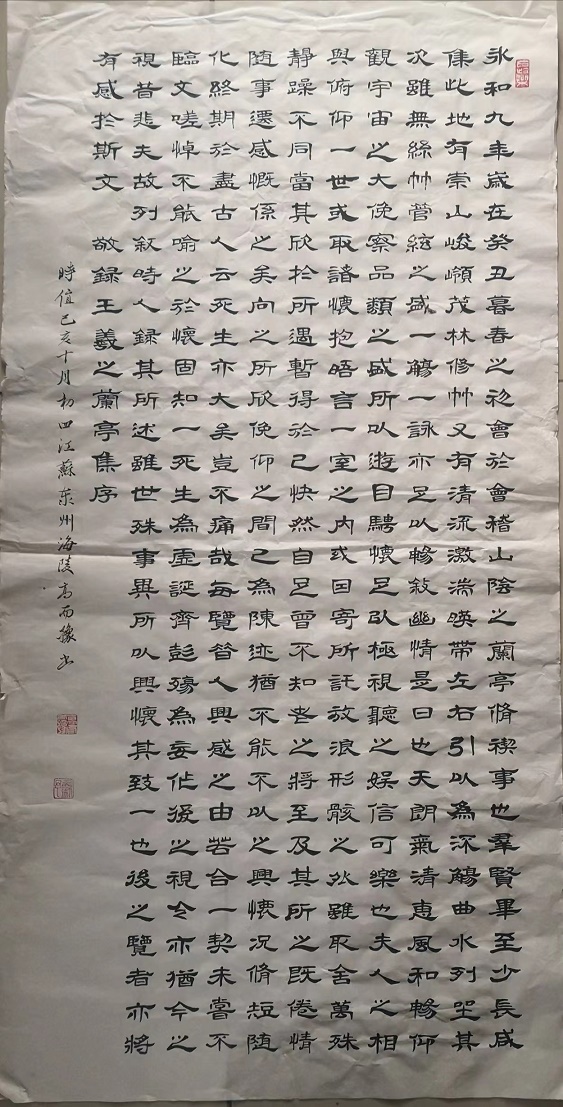 永和九年歲在癸丑暮春之初會於會稽山陰之蘭亭脩禊事也羣賢畢至少長咸
集此地有崇山峻嶺茂林修竹又有清流激湍暎帶左右引以為流觴曲水列坐其
次雖無絲竹管絃之盛一觴一詠亦足以暢敘幽情是日也天朗氣清惠風和暢仰
觀宇宙之大俛察品類之盛所以遊目騁懷足以極視聽之娛信可樂也夫人之相
與俯仰一世或取諸懷抱晤言一室之內或因寄所託放浪形骸之外雖取舍萬殊
靜躁不同當其欣於所遇暫得於己快然自足曾不知老之將至及其所之既倦情
随事遷感慨係之矣向之所欣俛仰之間已為陳迹猶不能不以之興懷況脩短随
化終期於盡古人云死生亦大矣豈不痛哉每覽昔人興感之由若合一契未嘗不
臨文嗟悼不能喻之於懷固知一死生為虛誕齊彭殤為妄作後之視今亦猶今之
視昔悲夫故列敘時人録其所述雖世殊事異所以興懷其致一也後之覽者亦將
有感於斯文 敬録王羲之蘭亭集序
時值己亥十月初四江蘇泰州海陵高而豫书